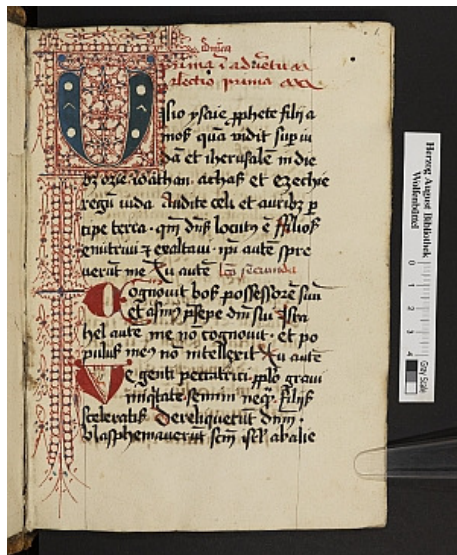 dnica
prima in adventu
lectio prima
Visio ysaie pphete filij a
mos quā vidit sup iu
dā et iherusalē in die
bz ozie ioathan achas et ezechie
regū iuda Audite celi et auribz p
cipe terra qm dns locutus ē ffilios
enutriui et exaltaui ipi autē spre
uerūt me Tu autē lco secunda
Cognouit bos possessorē suū
et asin9 psepe dni sui Isra
hel autē me nō cognouit et po
pulus me9 nō intellexit Tu autē
Ve genti peccatrici pplo graui
iniqtate semini neqz filijs
sceleratis Dereliquerūt dnm
blasphemauerūt scm isrl abalie
Herzog August Bibliothek
Wolfenbüttel
0 1 2 3 4
Gray Scale